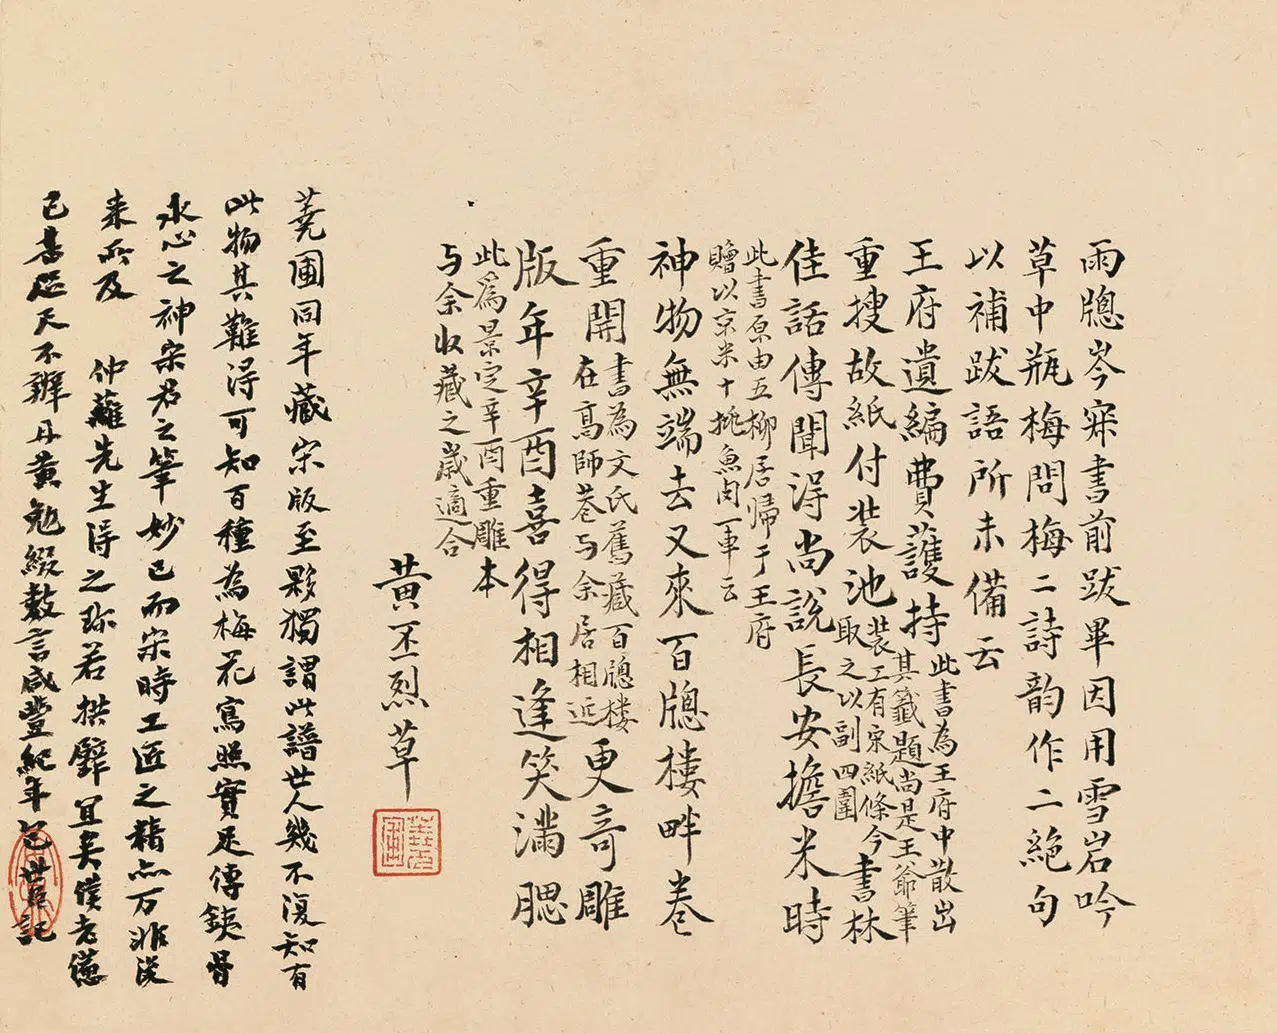 雨牕岑寂書前跋畢因用雪岩吟
草中瓶梅問梅二詩韵作二絕句
以補跋語所未備云
王府遺編費護持此書為王府中散出其籤題尚是王爺筆
重搜故紙付裝池裝工有宋紙條今取之以副四圍書林
佳話傳聞得尚說長安擔米時
此書原由五柳居歸于王府
贈以京米十挑魚肉一車云
神物無端去又來百牕樓畔卷
重開書為文氏舊藏百牕樓在高師巷与余居相近更奇雕
版年辛酉喜得相逢笑滿腮
此爲景定辛酉重雕本
与余收藏之歲適合
黃丕烈草
蕘圃
蕘圃同年藏宋版至夥獨謂此譜世人幾不復知有
此物其難得可知百種為梅花寫照實足傳鉄骨
冰心之神宋君之筆妙已而宋時工匠之精亦万非後
来所及 仲蘸先生得之珎若拱璧宜矣僕老憊
已甚廷天不辦丹黃勉綴數言咸豐紀年包世臣記